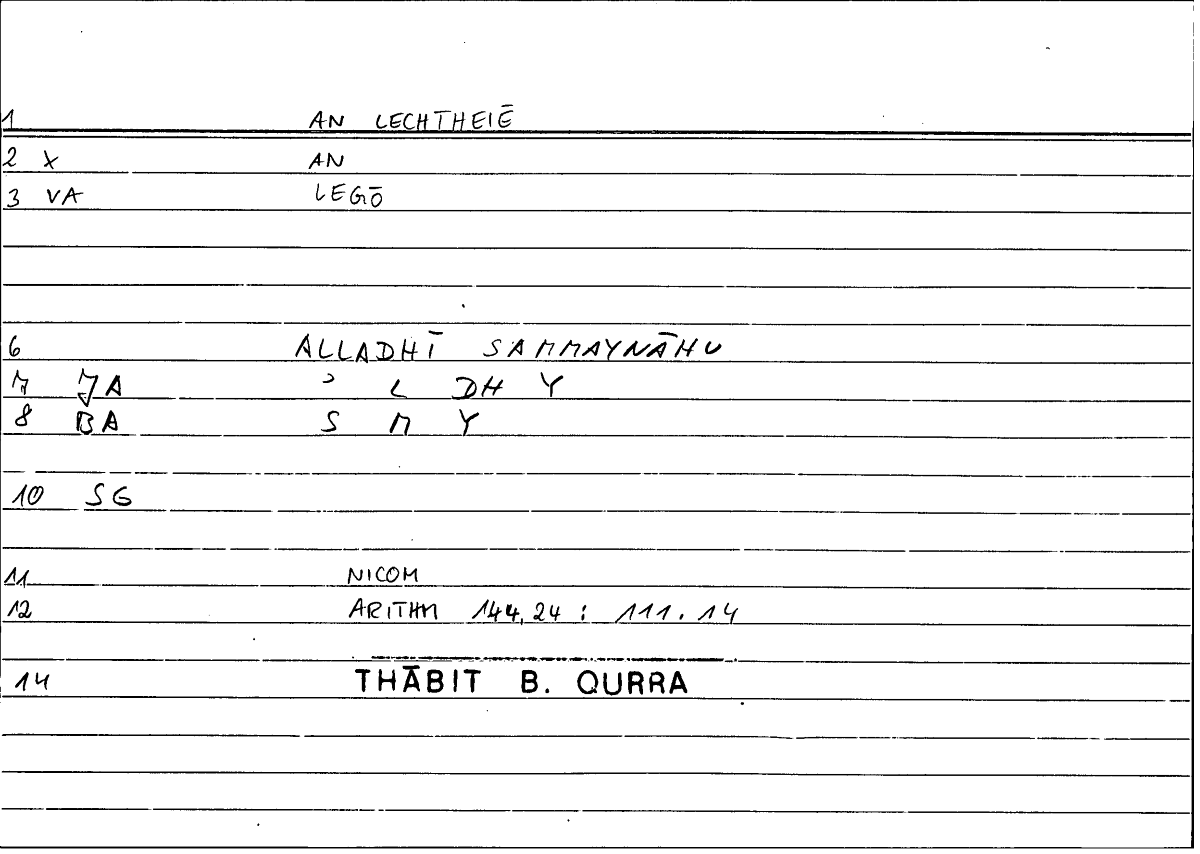 1 AN LECHTHEIĒ
2 X AN
3 VA LEGŌ
6 ALLADHĪ SAMMAYNĀHU
7 JA ʾ L DH Y
8 BA S M Y
10 SG
11 NICOM
12 ARITHM 144,24 : 111.14
14 THĀBIT B. QURRA